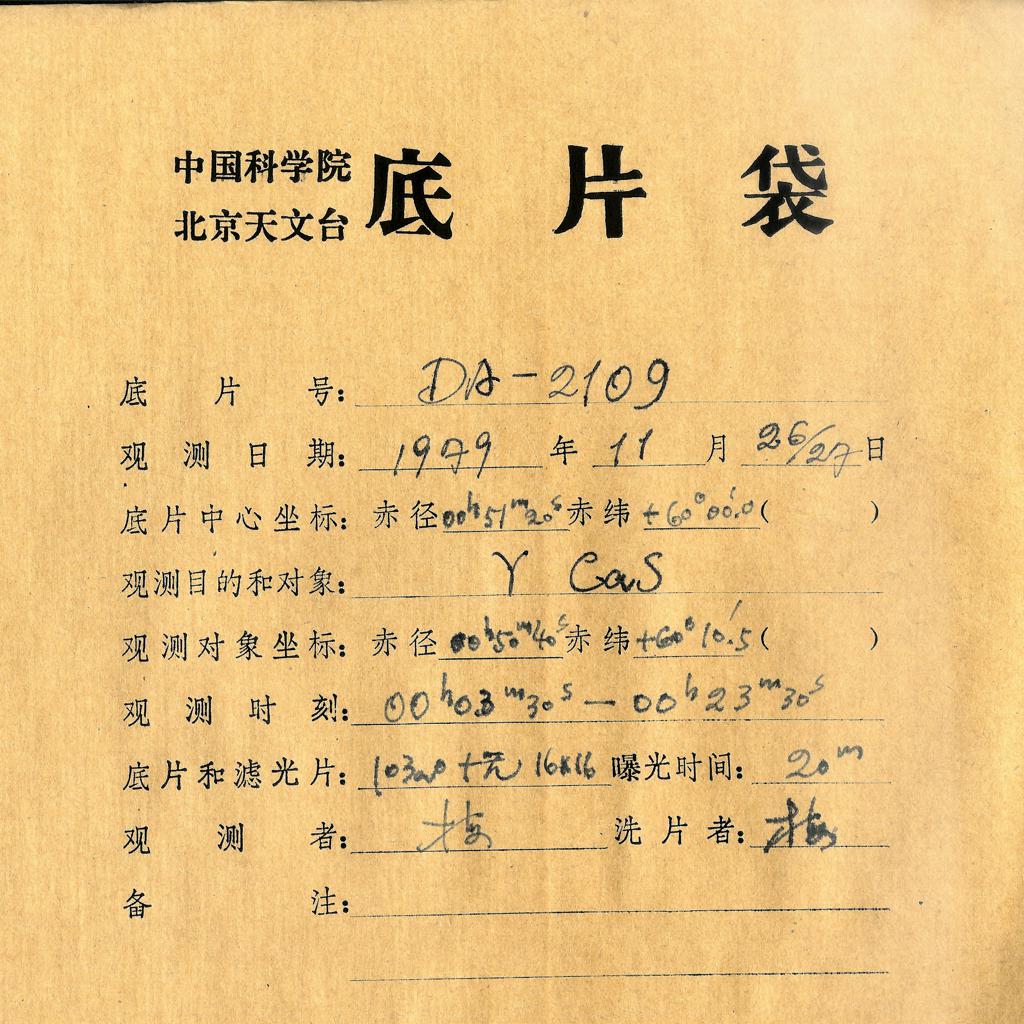 中国科学院
北京天文台
底片袋
底片号: DA-2109
观测日期: 1979年11月26/27日
底片中心坐标: 赤径00h51m20s赤纬+60°00'.0( )
观测目的和对象: γ Cas
观测对象坐标: 赤径00h50m40s赤纬+60°10'.5( )
观测时刻: 00h03m30s—00h23m30s
底片和滤光片: 103aO+无 16×16 曝光时间: 20m
观测者: 梅 洗片者: 梅
备注: